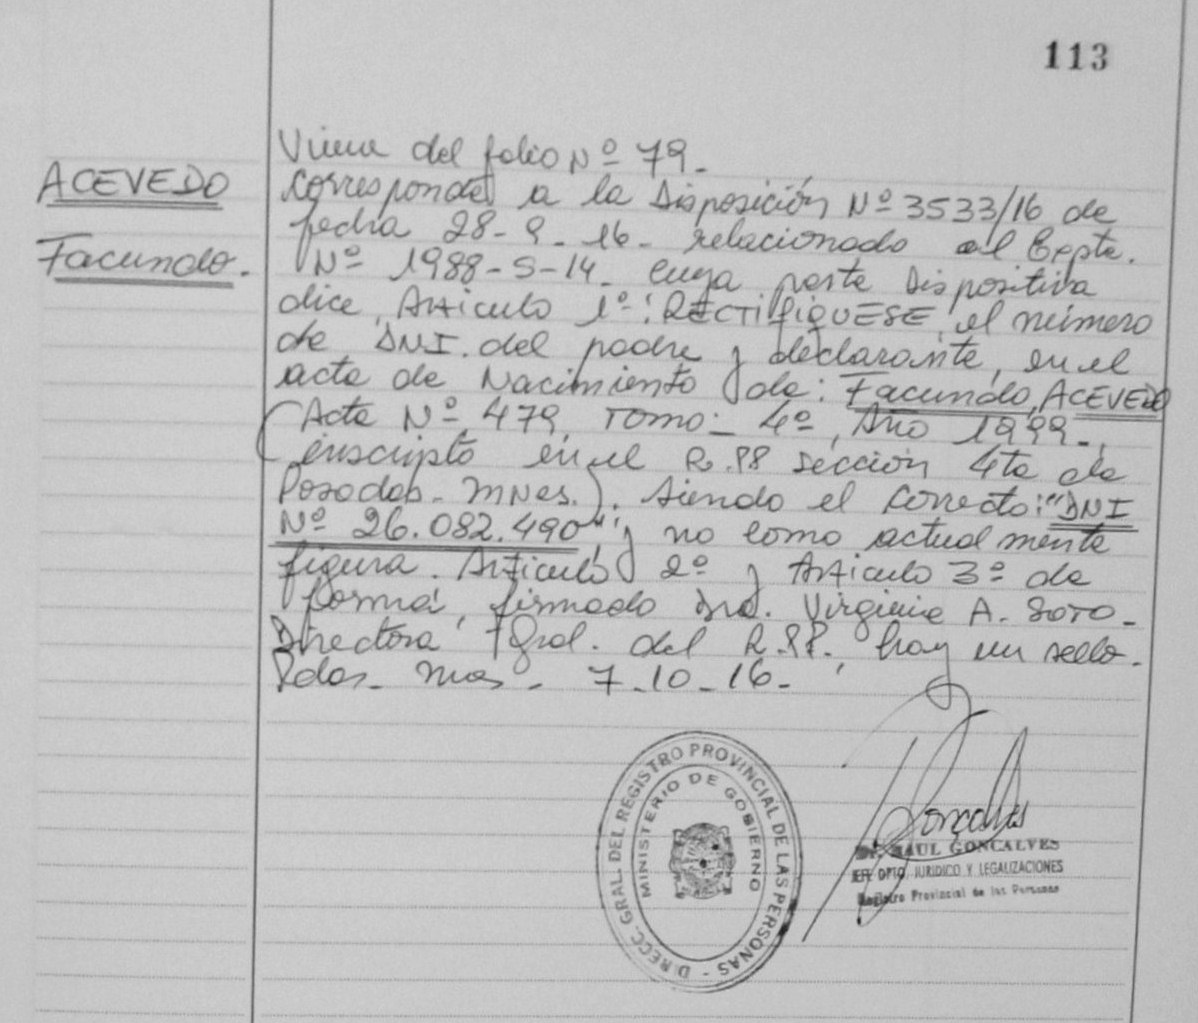 113
ACEVEDO
Facundo.
Viene del folio Nº 79.-
Corresponde a la Disposición Nº 3533/16 de
fecha 28-9-16- relacionado al Expte.
Nº 1988-S-14- cuya parte Dispositiva
dice, Articulo 1º: RECTIFIQUESE, el número
de DNI. del padre y declarante, en el
acta de Nacimiento de: Facundo, ACEVEDO
(Acta Nº 479, Tomo- 4º, Año 1999-,
inscripto en el R.PP sección 4ta de
Posadas- MNES.). Siendo el correcto: "DNI
Nº 26.082.490", y no como actualmente
figura. Articulo 2º y Articulo 3º de
forma, firmado Dra. Virginia A. SOTO-
Directora Gral. del R.PP., hay un sello.
Pdas- Mnes- 7-10-16-
DIRECC. GRAL. DEL REGISTRO PROVINCIAL DE LAS PERSONAS -
MINISTERIO DE GOBIERNO
Gonçalves
RAUL GONCALVES
JEFE DPTO. JURIDICO Y LEGALIZACIONES
Registro Provincial de las Personas